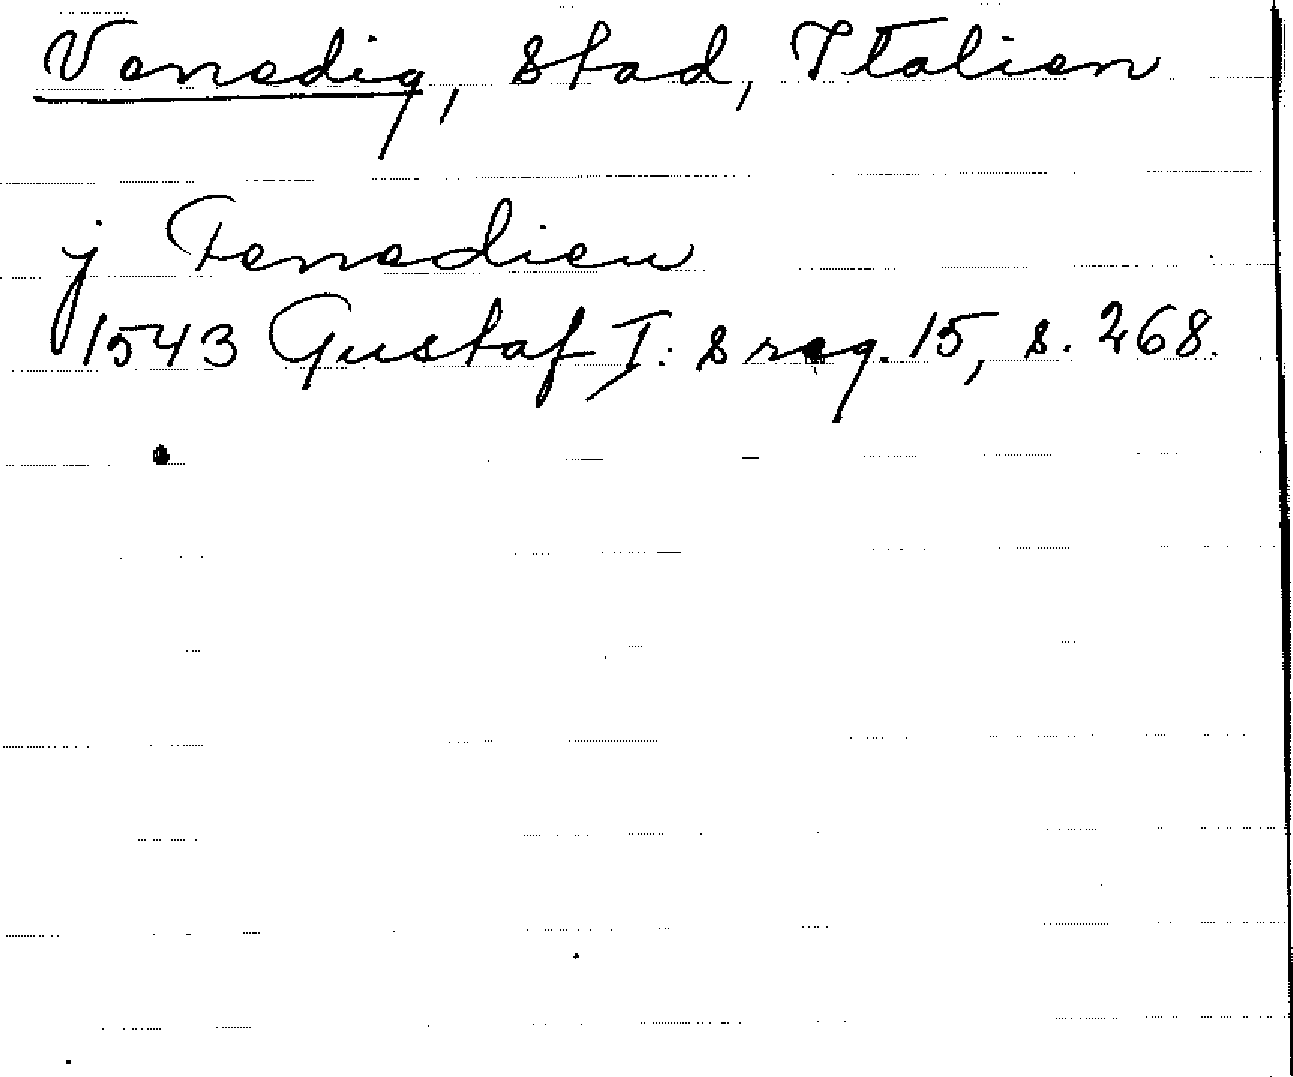 Venedig, stad, Italien
j Fenedieu
1543 Gustaf I: s reg. 15, s. 268.